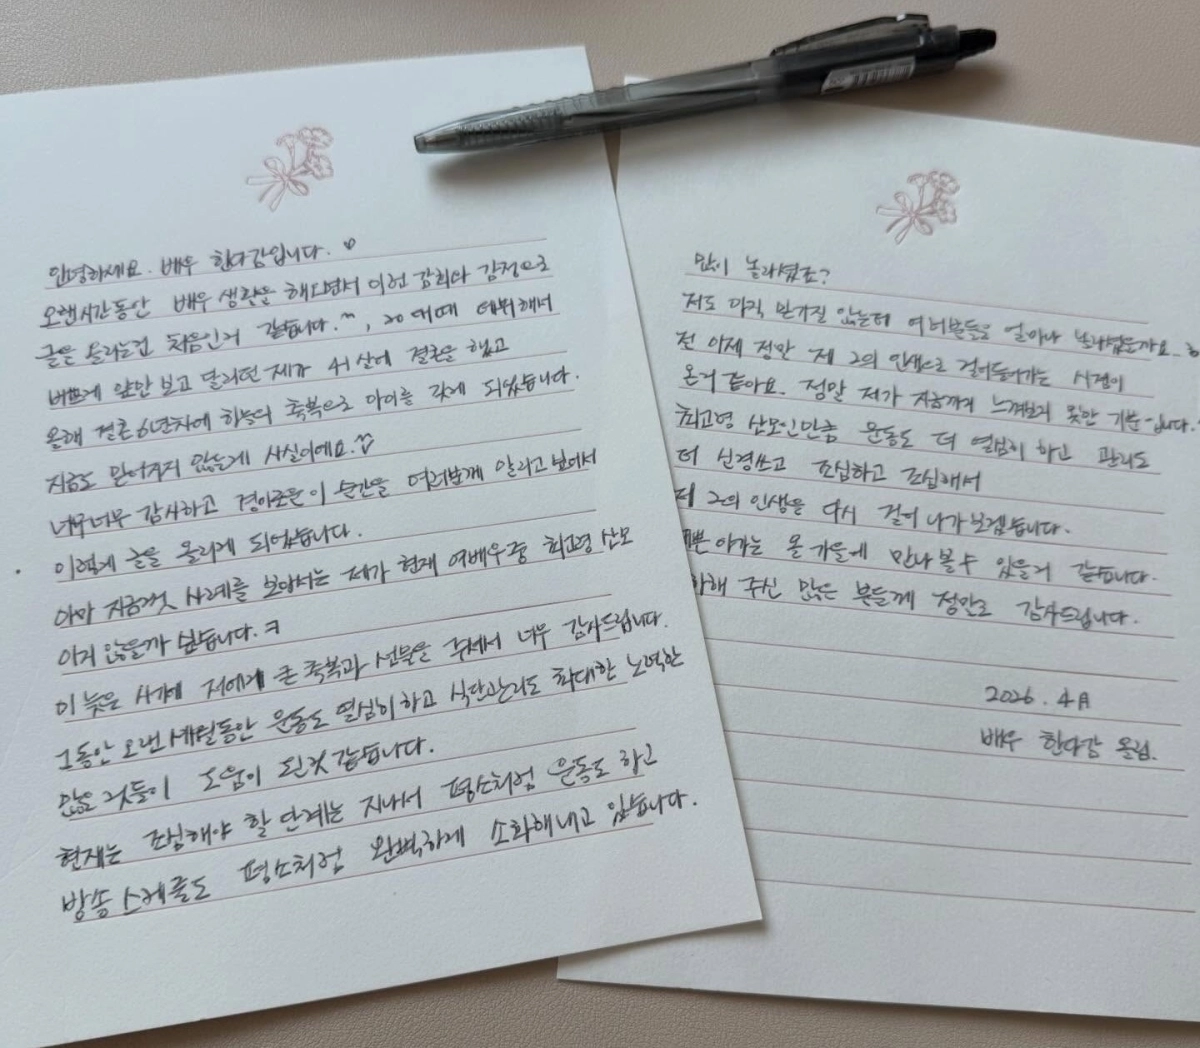 안녕하세요. 배우 한다감입니다. ♡
오랜시간동안 배우 생활을 해오면서 이런 감회와 감정으로
글을 올리는건 처음인거 같습니다.^^, 20대때 데뷔해서
바쁘게 앞만 보고 달리던 제가 41살에 결혼을 했고
올해 결혼 6년차에 하늘의 축복으로 아이를 갖게 되었습니다.
지금도 믿어지지 않는데 사실이에요.
너무너무 감사하고 경이로운 이 순간을 여러분께 알리고 싶어서
이렇게 글을 올리게 되었습니다.
아마 지금껏 사례를 보아서는 제가 현재 여배우중 최고령 산모
이지 않을까 싶습니다.ㅋ
이 늦은 시기에 저에게 큰 축복과 선물을 주셔서 너무 감사드립니다.
그동안 오랜 세월동안 운동도 열심히 하고 식단관리도 최대한 노력한
많은 것들이 도움이 된것 같습니다.
현재는 조심해야 할 단계는 지나서 평소처럼 운동도 하고
방송 스케쥴도 평소처럼 완벽하게 소화해내고 있습니다.
많이 놀라셨죠?
저도 아직 믿기질 않는데 여러분들은 얼마나 놀라셨을까요.
전 이제 정말 제 2의 인생으로 걸어들어가는 시점이
온거 같아요. 정말 제가 지금까지 느껴보지 못한 기분입니다.
최고령 산모인만큼 운동도 더 열심히 하고 관리도
더 신경쓰고 조심하고 조심해서
제 2의 인생을 다시 걸어 나가보겠습니다.
쁜 아가는 올 가을에 만나볼수 있을거 같습니다.
하해 주신 많은 분들께 정말로 감사드립니다.
2026. 4月
배우 한다감 올림.